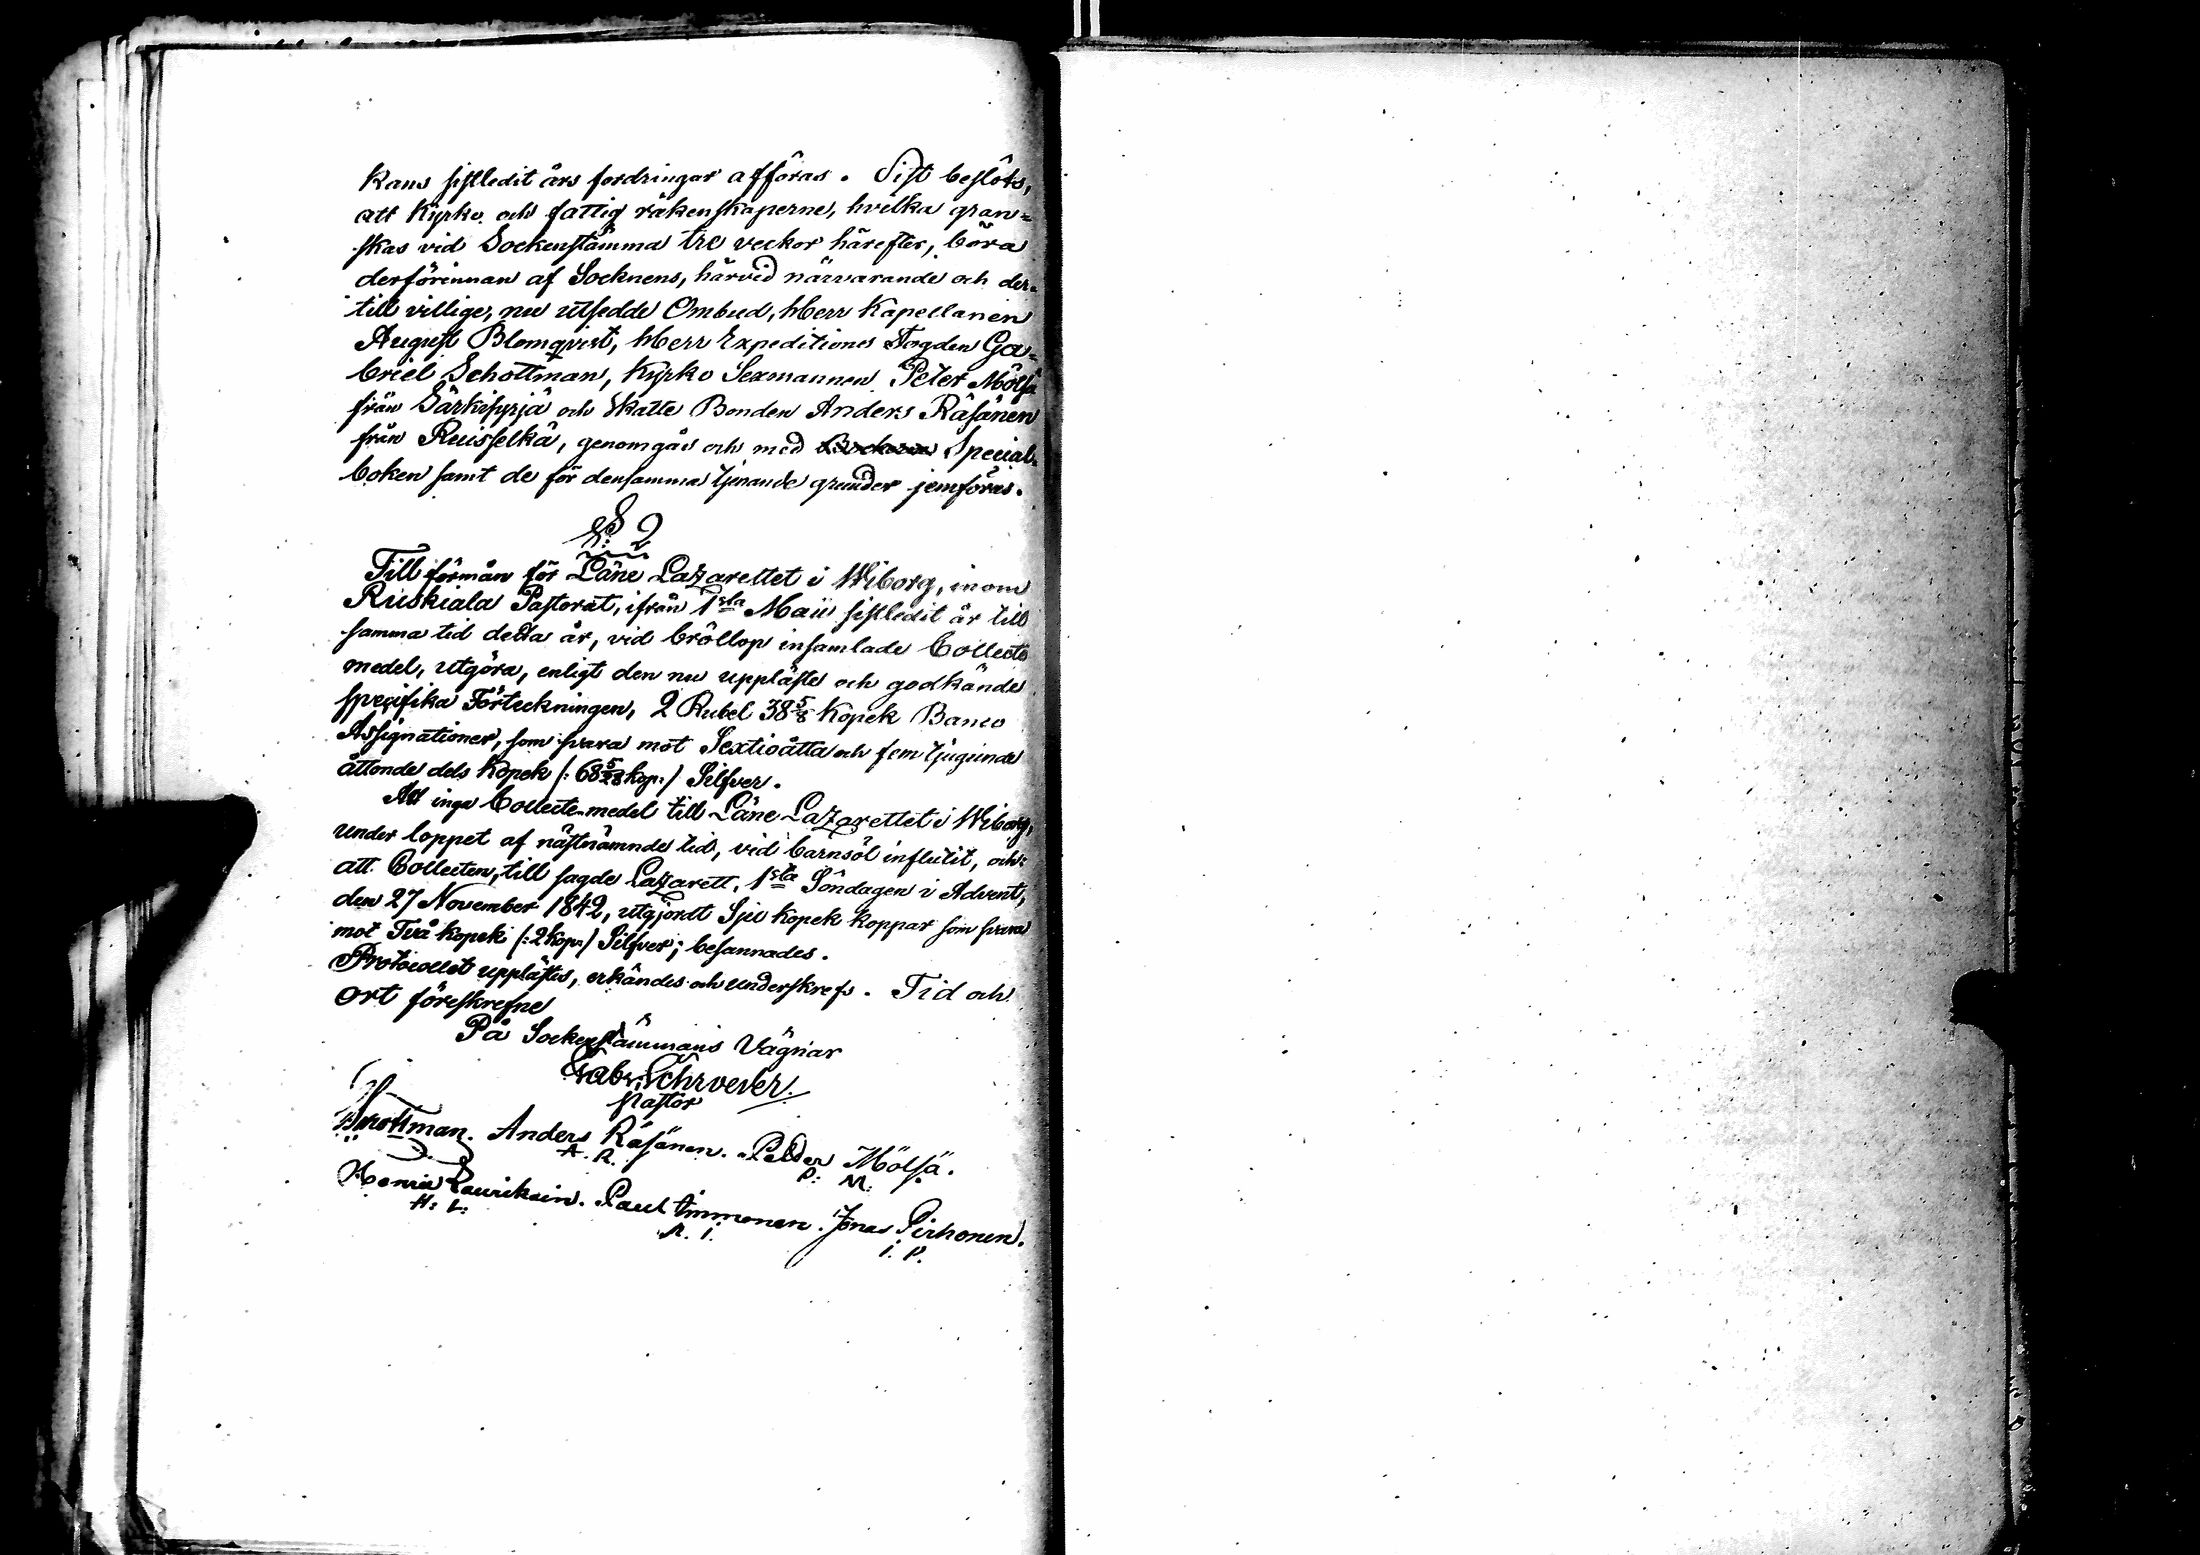 kans sistledit års fordringar afföras. Sist beslöts,
att Kyrko och fattig räkenskaperne, hvilka gran=
skas vid Sockenstämma tre veckor härefter, böra
derförinnan af Socknens, härvid närvarande och der=
till villige, nu utsedde Ombud, Herr Kapellanen
August Blomqvist, Herr Expeditions Fogden Ga=
briel Schottman, Kyrko Sexmannen Peter Mölsä
från Särkisyrjä och Skatte Bonden Anders Räsänen
från Ruisselkä, genomgås och med Special=
boken samt de för densamma tjenande grunder jemföras.
§ 2
Till förmån för Läne Lazarettet i Wiborg, inom
Ruskiala Pastorat, ifrån 1sta Maii sistledit år till
samma tid detta år, vid bröllop insamlade Collecte
medel, utgöra, enligt den nu uppläste och godkände
specifika Förteckningen, 2 Rubel 38 5/8 Kopek Banco
Assignationer, som svara mot Sextioåtta och fem tjugunde
åttonde dels Kopek (: 68 5/28 kop:) Silfver.
Att inga Collecte-medel till Läne Lazarettet i Wiborg,
under loppet af nästnämnde tid, vid barnsöl influtit, och
att Collecten, till sagde Lazarett, 1sta Söndagen i Advent,
den 27 November 1842, utgjordt Sju kopek koppar som svara
mot Två kopek (: 2 kop:) Silfver; besannades.
Protocollet upplästes, erkändes och underskrefs. Tid och
ort föreskrefne
På Sockenstämmans Vägnar
Gabr. Schroeder.
Pastor
Schottman. Anders Räsänen. Petter Mölsä.
A. R. P: M:
Henric Laurikain. Paul Immonen. Jonas Pirhonen.
H: L: P. I. I. P.